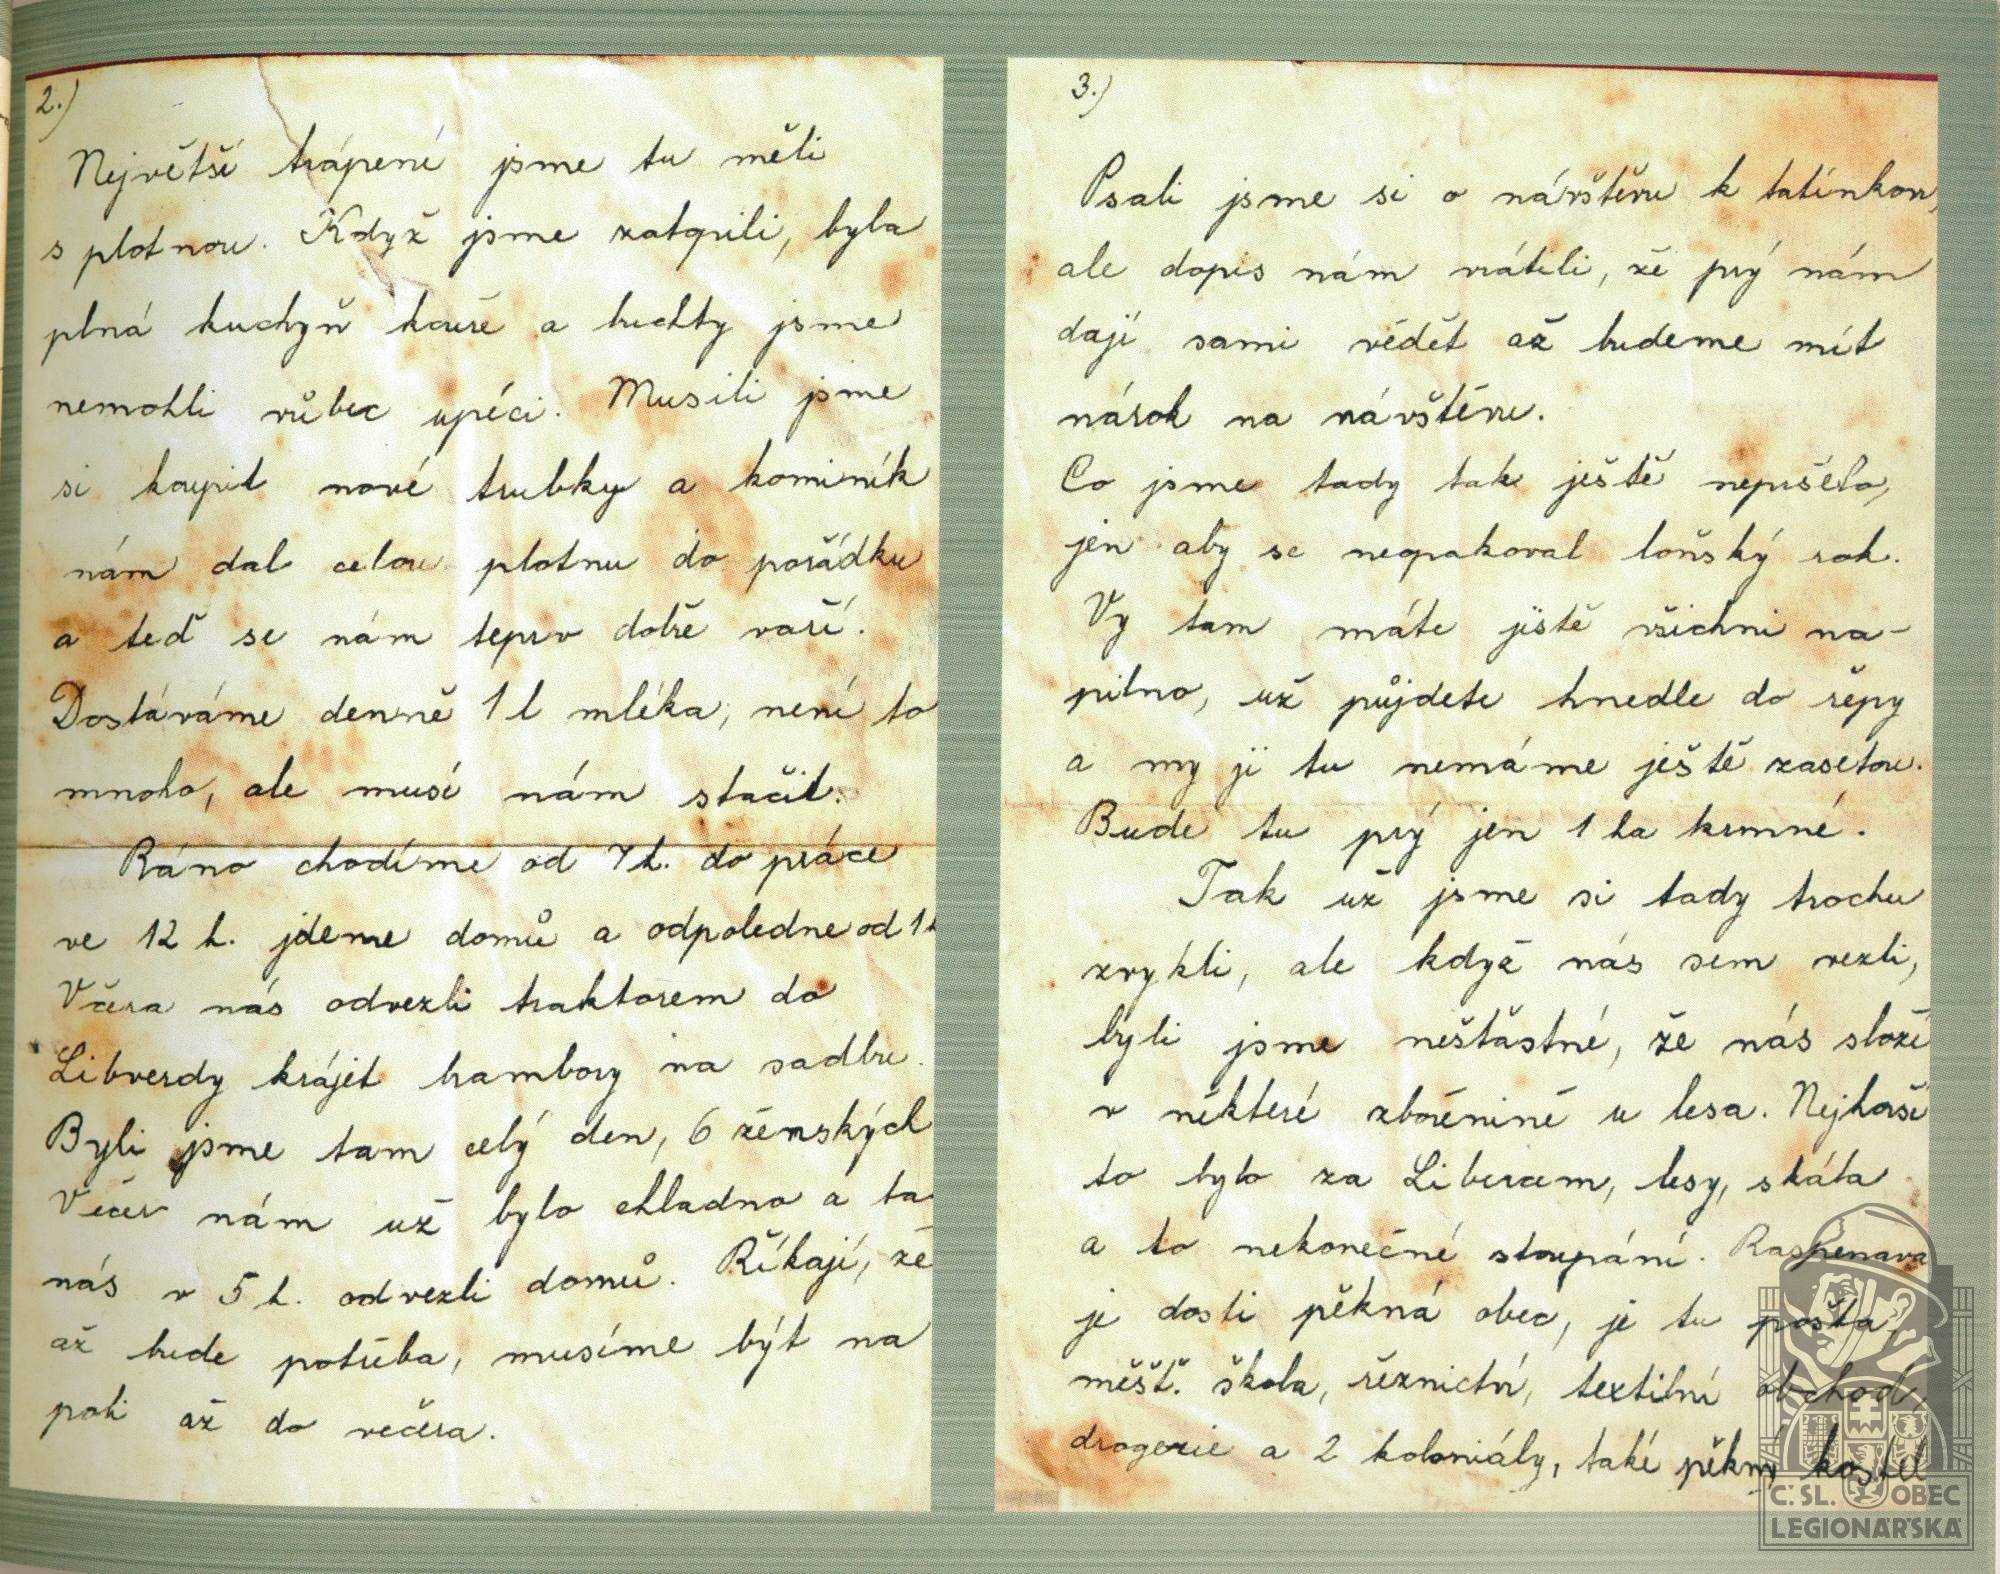 2.)
Největší trápení jsme tu měli
s plotnou. Když jsme zatopili, byla
plná kuchyň kouře a buchty jsme
nemohli vůbec upéci. Musili jsme
si koupit nové trubky a kominík
nám dal celou plotnu do pořádku
a teď se nám teprv dobře vaří.
Dostáváme denně 1 l mléka, není to
mnoho, ale musí nám stačit.
Ráno chodíme od 7 h. do práce
ve 12 h. jdeme domů a odpoledne od 1 h
Včera nás odvezli traktorem do
Libverdy krájet brambory na sadbu.
Byli jsme tam celý den, 6 ženských
Večer nám už bylo chladno a ta
nás v 5 h. odvezli domů. Říkají, že
až bude potřeba, musíme být na
poli až do večera.
3.)
Psali jsme si o návštěvu k tatínkovi,
ale dopis nám vrátili, že prý nám
dají sami vědět až budeme mít
nárok na návštěvu.
Co jsme tady tak ještě nepršelo,
jen aby se neopakoval loňský rok.
Vy tam máte jistě všichni na-
pilno, už půjdete hnedle do řepy
a my ji tu nemáme ještě zasetou.
Bude tu prý jen 1 ha krmné.
Tak už jsme si tady trochu
zvykli, ale když nás sem vezli,
byli jsme nešťastné, že nás složí
v některé zbořenině u lesa. Nejhorší
to bylo za Libercem, lesy, skála
a to nekonečné stoupání. Raspenava
je dosti pěkná obec, je tu pošta,
měšť. škola, řeznictví, textilní obchod,
drogerie a 2 koloniály, také pěkný kostel
Č. SL. OBEC
LEGIONÁŘSKÁ